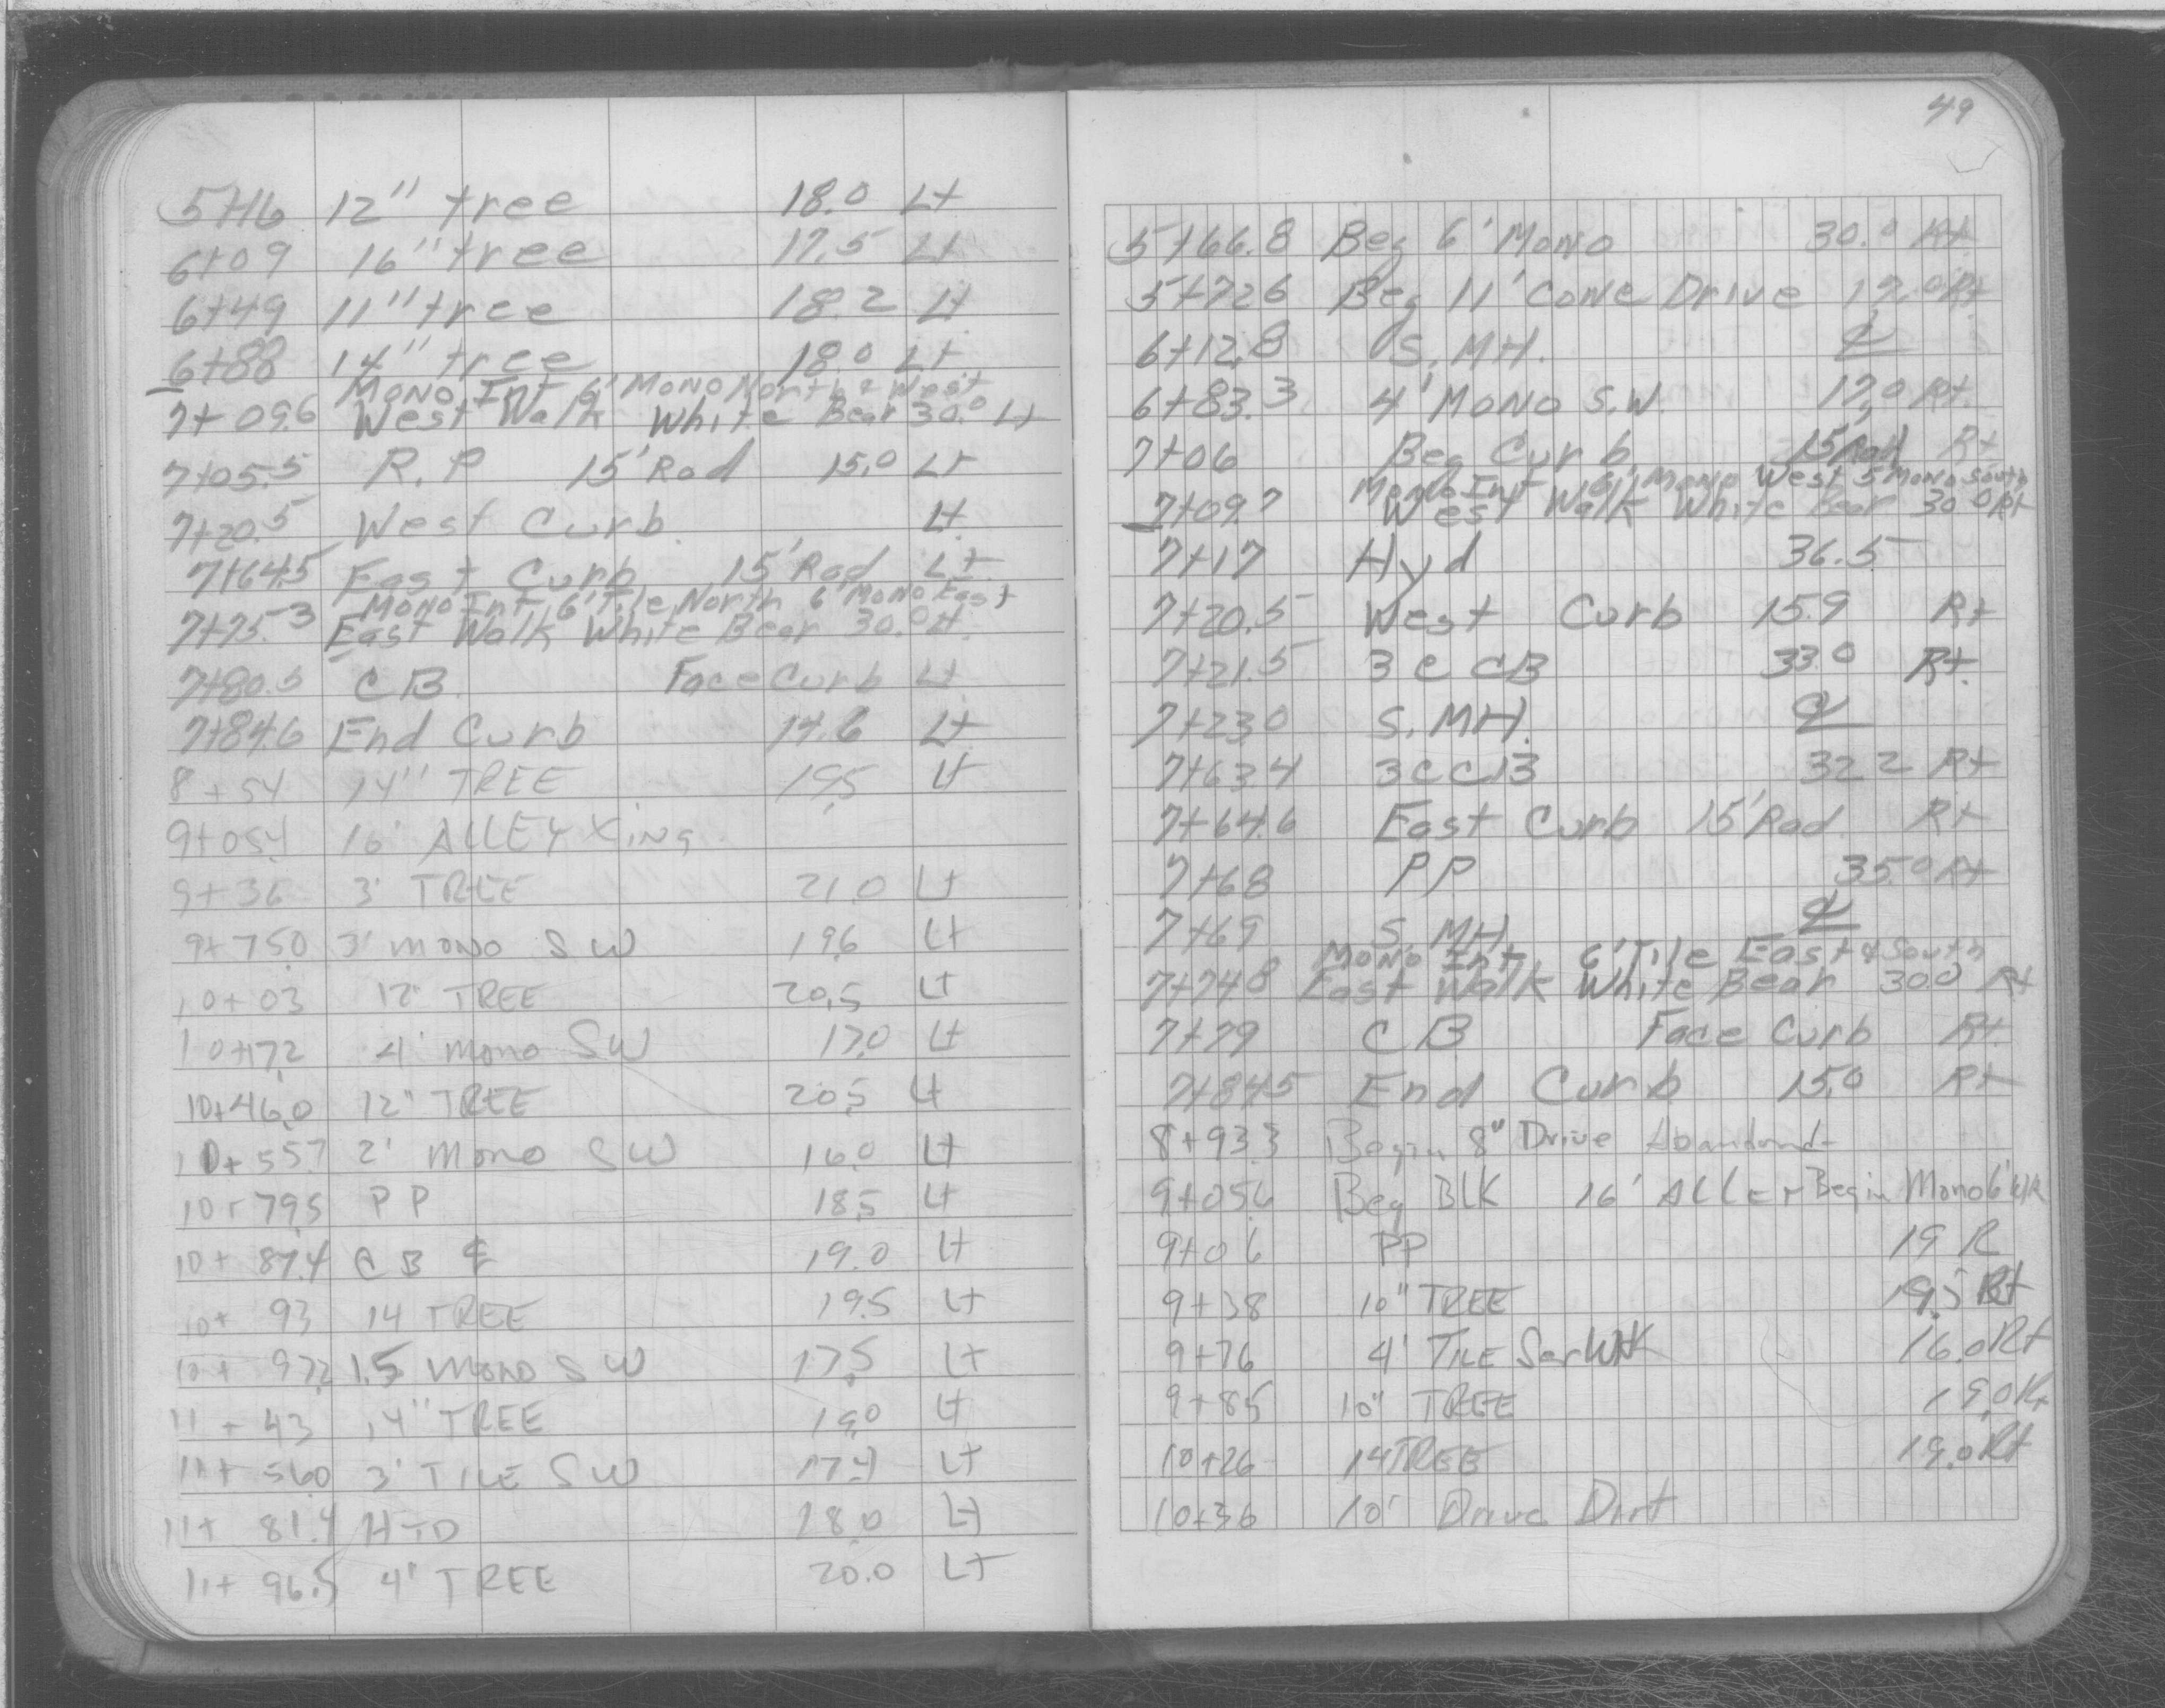 5+16 12" tree 18.0 Lt
6+09 16" tree 17.5 Lt
6+49 11" tree 18.2 Lt
6+88 14" tree 18.0 Lt
Mono Int 6' Mono North & West
7+09.6 West Walk White Bear 30.0 Lt
7+05.5 R.P 15' Rad 15.0 Lt
7+20.5 West Curb Lt
7+64.5 East Curb 15' Rad Lt
Mono Int 6' Tile North 6' Mono East
7+75.3 East Walk White Bear 30.0 Lt
7+80.5 CB Face Curb Lt
7+84.6 End Curb 14.6 Lt
8+54 14" TREE 19.5 Lt
9+05.4 16' ALLEY XING
9+36 3' TREE 21.0 Lt
9+75.0 3' MONO SW 19.6 Lt
10+03 12" TREE 20.5 Lt
10+17.2 4' MONO SW 17.0 Lt
10+46.0 12" TREE 20.5 Lt
10+55.7 2' MONO SW 16.0 Lt
10+79.5 PP 18.5 Lt
10+87.4 CB ℄ 19.0 Lt
10+93 14 TREE 19.5 Lt
10+97.2 1.5 MONO SW 17.5 Lt
11+43 14" TREE 19.0 Lt
11+56.0 3' TILE SW 17.4 Lt
11+81.4 HYD 18.0 Lt
11+96.5 4' TREE 20.0 Lt
49
5+66.8 Beg 6' Mono 30.0 Rt
5+72.6 Beg 11' Conc Drive 17.0 Rt
6+12.8 S.MH. ℄
6+83.3 4' MONO S.W. 17.0 Rt
7+06 Beg Curb 15' Rad Rt
Mono Int 6' Mono West 5' Mono South
7+09.7 West Walk White Bear 30.0 Rt
7+17 Hyd 36.5
7+20.5 West Curb 15.9 Rt
7+21.5 3 C CB 33.0 Rt.
7+23.0 S.MH. ℄
7+63.4 3 C CB 32.2 Rt
7+64.6 East Curb 15' Rad Rt
7+68 PP 35.0 Rt
7+69 S.MH ℄
Mono Int 6' Tile East & South
7+74.8 East Walk White Bear 30.0 Rt
7+79 CB Face Curb Rt
7+84.5 End Curb 15.0 Rt
8+93.3 Begin 8" Drive
9+05.6 Beg BLK 16' ALLEY Begin Mono 6'
9+06 PP 19 R
9+38 10" TREE 19.5 Rt
9+76 4' TILE Ser WK 16.0 Rt
9+85 10" TREE 19.0 Rt
10+26 14 TREE 19.0 Rt
10+36 10' Drive Dirt